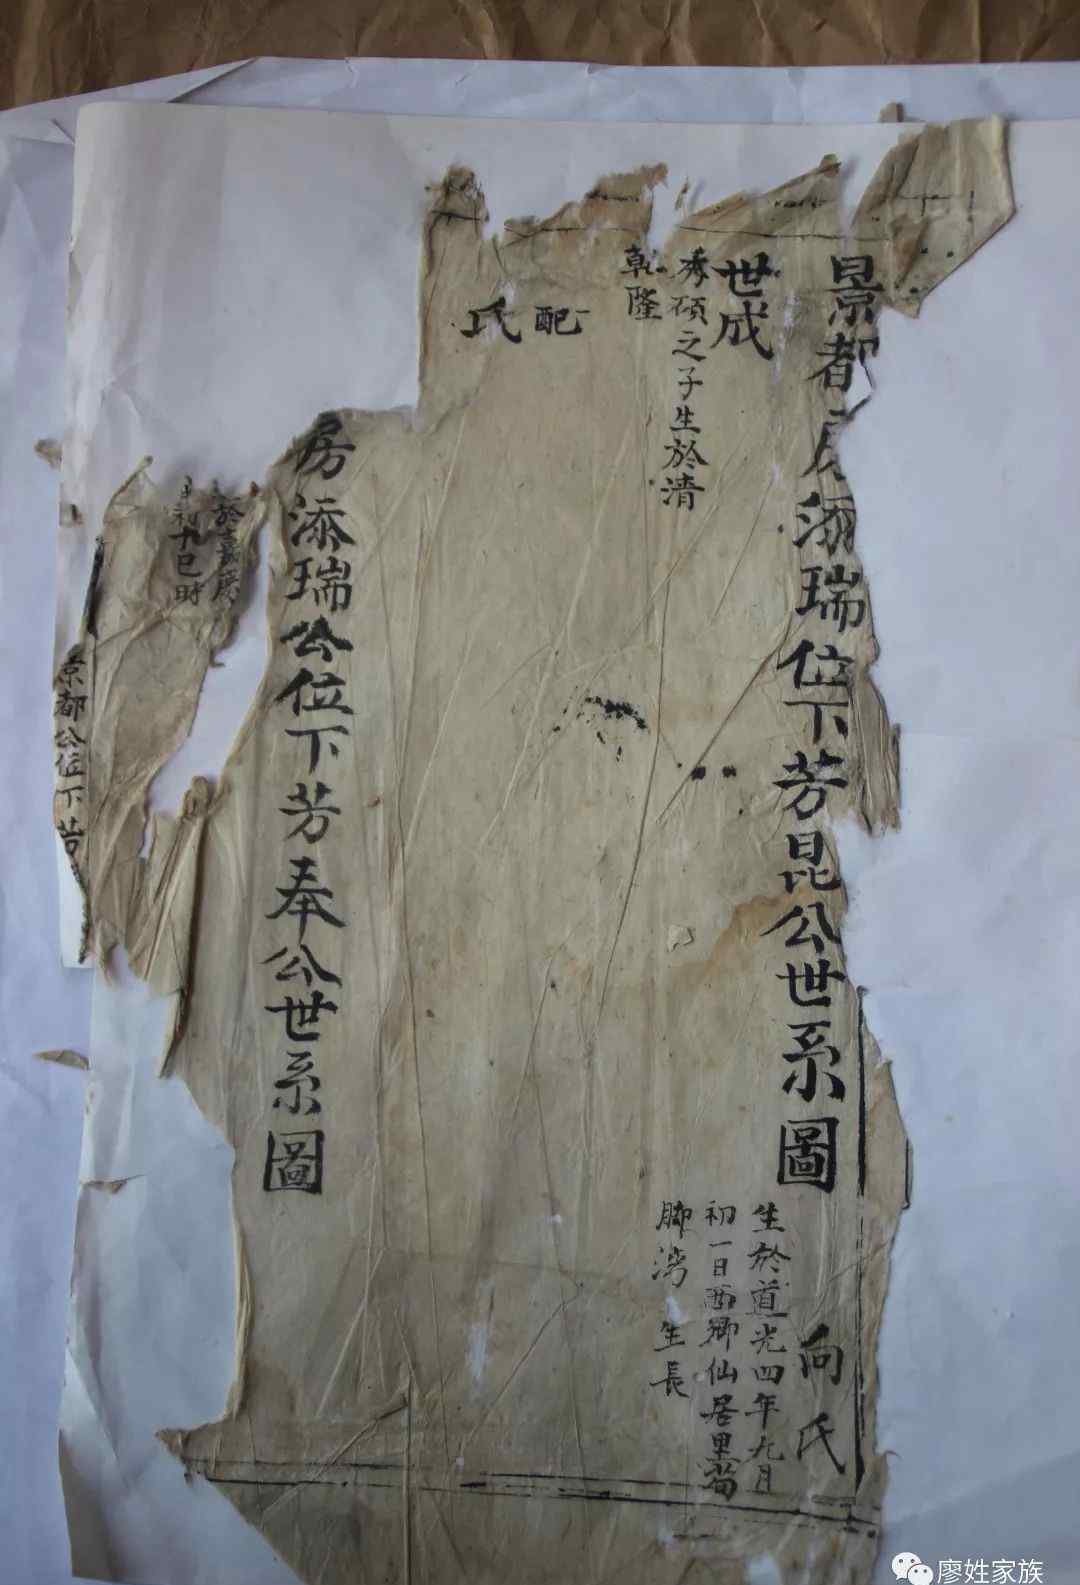 景都房添瑞位下芳昆公世系圖
向氏
生於道光四年九月
初一日西鄉仙居里荀
腳灣 生長
世成
秀碩之子生於清
乾隆
配
氏
房添瑞公位下芳奉公世系圖
於嘉慶
初九巳時
景都公位下芳
廖姓家族